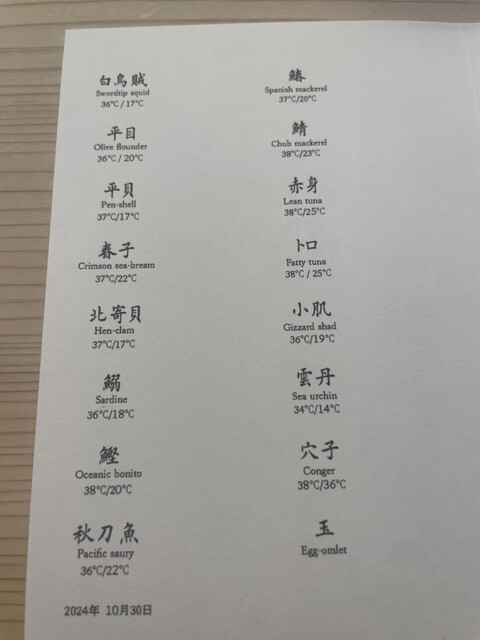 白烏賊
Swordtip squid
36℃ / 17℃
平目
Olive flounder
36℃ / 20℃
平貝
Pen-shell
37℃/17℃
春子
Crimson sea-bream
37℃/22℃
北寄貝
Hen-clam
37℃/17℃
鰯
Sardine
36℃/18℃
鰹
Oceanic bonito
38℃/20℃
秋刀魚
Pacific saury
36℃/22℃
鰆
Spanish mackerel
37℃/20℃
鯖
Chub mackerel
38℃/23℃
赤身
Lean tuna
38℃/25℃
トロ
Fatty tuna
38℃ / 25℃
小肌
Gizzard shad
36℃/19℃
雲丹
Sea urchin
34℃/14℃
穴子
Conger
38℃/36℃
玉
Egg-omlet
2024年 10月30日